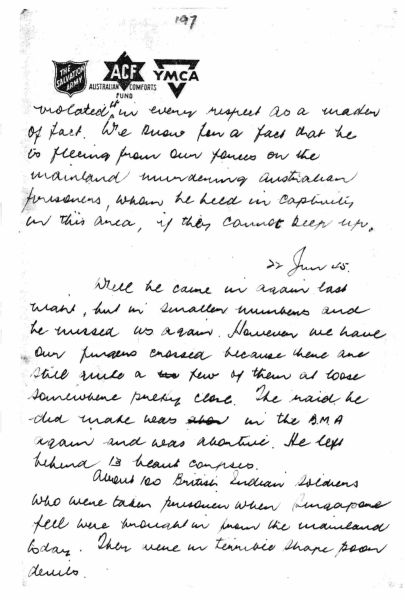 197
THE SALVATION ARMY
ACF
AUSTRALIAN COMFORTS FUND
YMCA
violated it in every respect as a matter
of fact. We know for a fact that he
is fleeing from our forces on the
mainland murdering Australian
prisoners, whom he held in captivity
in this area, if they cannot keep up.
22 Jun 45.
Well he came in again last
night, but in smaller numbers and
he missed us again. However we have
our fingers crossed because there are
still quite a few of them at loose
somewhere pretty close. The raid he
did make was in the BMA
again and was abortive. He left
behind 13 beaut corpses.
About 100 British Indian soldiers
who were taken prisoner when Singapore
fell were brought in from the mainland
today. They were in terrible shape poor
devils.